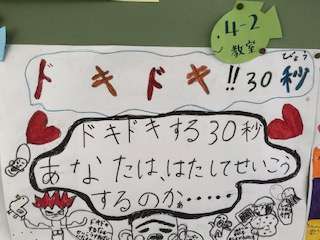 4-2
教室
びょう
ドキドキ!!30秒
ドキドキする30秒
あなたは、はたしてせいこう
するのか……